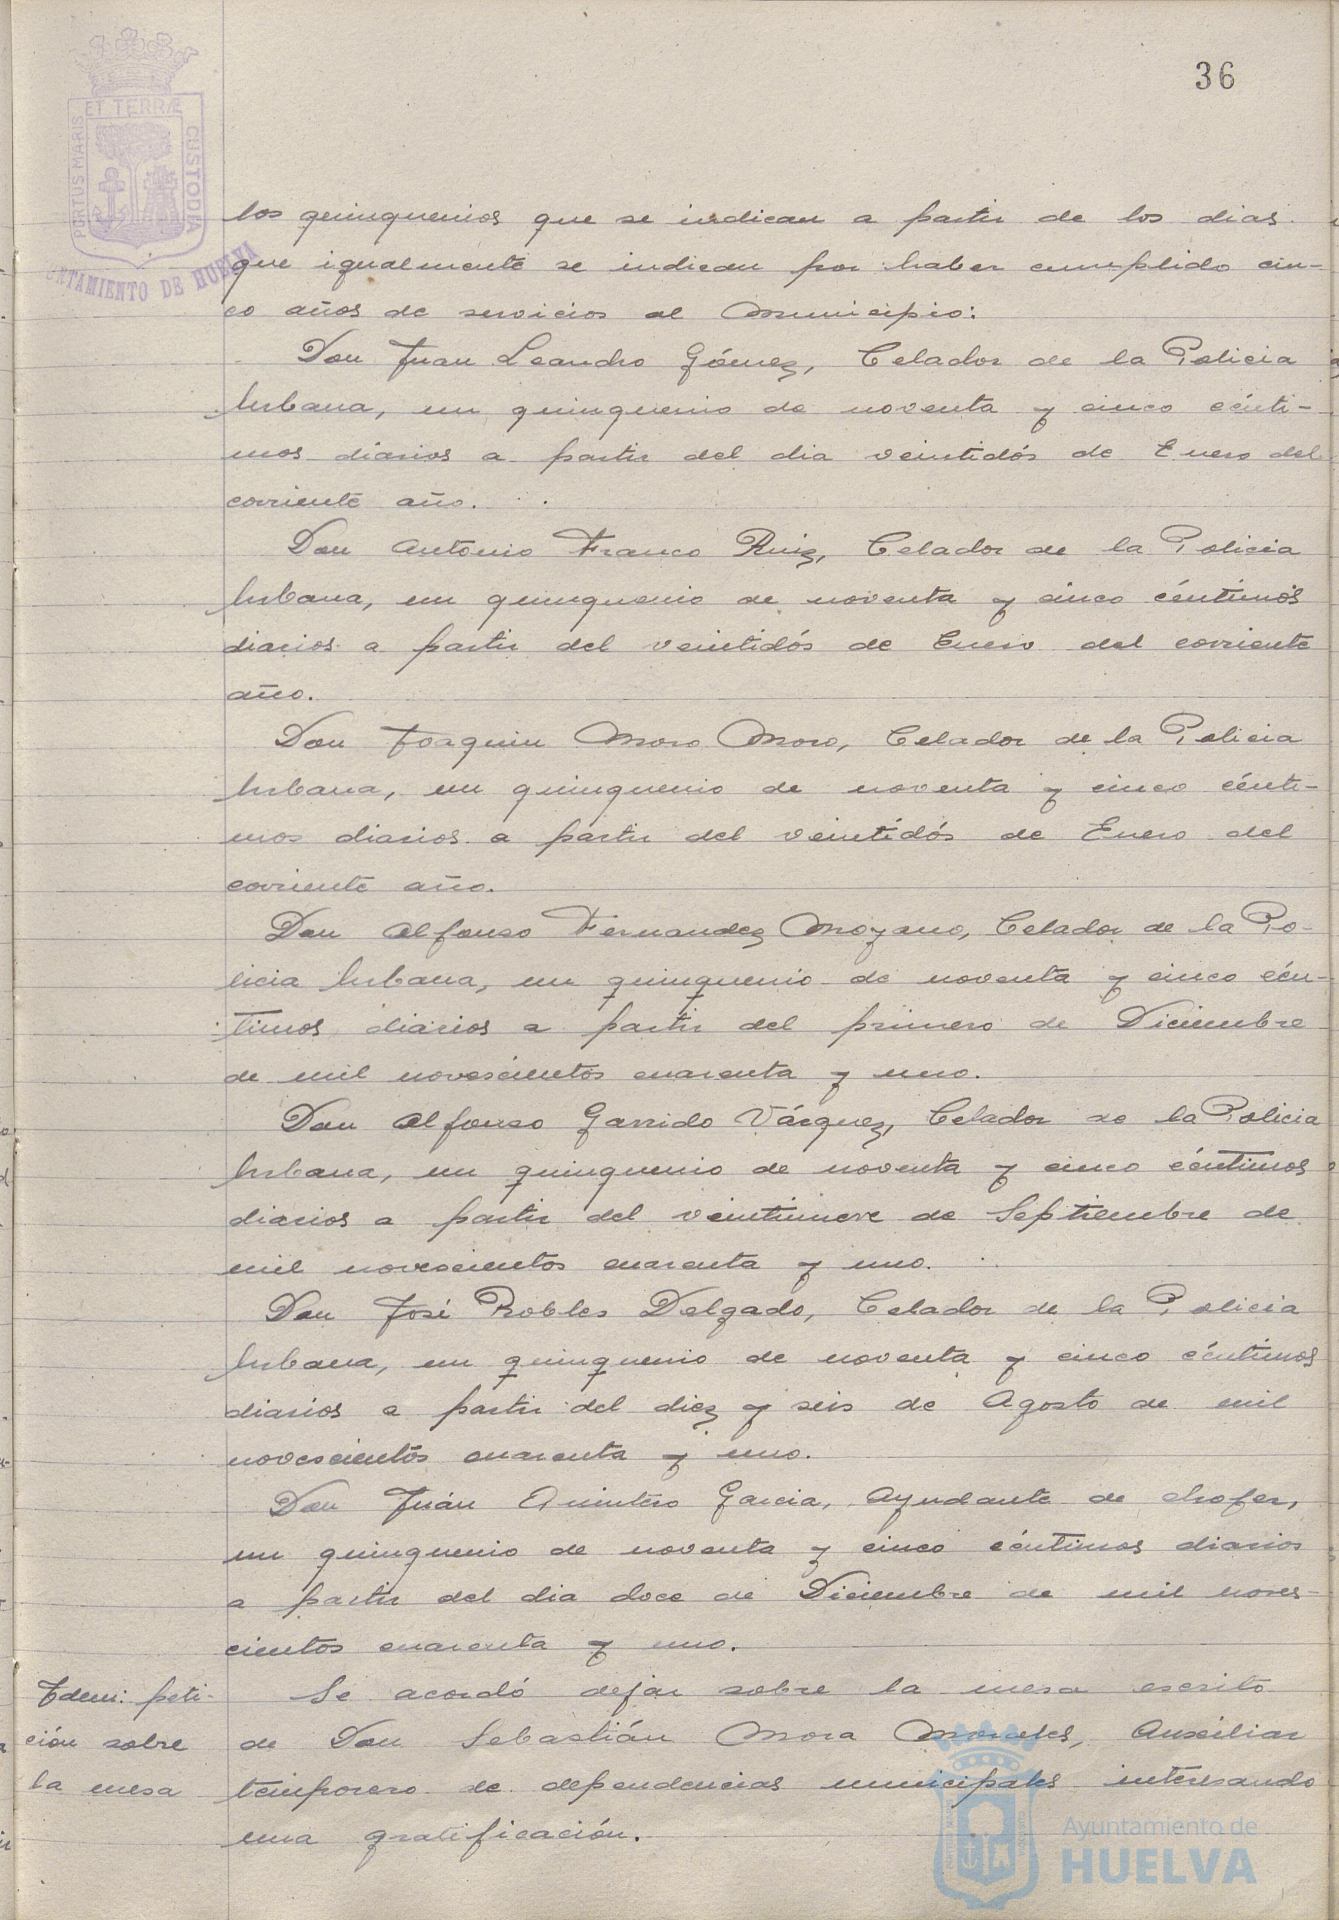 36
PORTUS MARIS ET TERRÆ CUSTODIA
AYUNTAMIENTO DE HUELVA
los quinquenios que se indican a partir de los dias
que igualmente se indican por haber cumplido cin-
co años de servicios al Municipio:
Don Juan Leandro Gómez, Celador de la Policia
Urbana, un quinquenio de noventa y cinco cénti-
mos diarios a partir del dia veintidós de Enero del
corriente año.
Don Antonio Franco Ruiz, Celador de la Policia
Urbana, un quinquenio de noventa y cinco céntimos
diarios a partir del veintidós de Enero del corriente
año.
Don Joaquin Moro Moro, Celador de la Policia
Urbana, un quinquenio de noventa y cinco cénti-
mos diarios a partir del veintidós de Enero del
corriente año.
Don Alfonso Fernandez Moyano, Celador de la Po-
licia Urbana, un quinquenio de noventa y cinco cén-
timos diarios a partir del primero de Diciembre
de mil novescientos cuarenta y uno.
Don Alfonso Garrido Vázquez, Celador de la Policia
Urbana, un quinquenio de noventa y cinco céntimos
diarios a partir del veintinueve de Septiembre de
mil novescientos cuarenta y uno.
Don José Robles Delgado, Celador de la Policia
Urbana, un quinquenio de noventa y cinco céntimos
diarios a partir del diez y seis de Agosto de mil
novescientos cuarenta y uno.
Don Juán Quintero Garcia, Ayudante de chofer,
un quinquenio de noventa y cinco céntimos diarios
a partir del dia doce de Diciembre de mil noves-
cientos cuarenta y uno.
Idem: peti-
ción sobre
la mesa
Se acordó dejar sobre la mesa escrito
de Don Sebastián Mora Morales, Auxiliar
temporero de dependencias municipales interesando
una gratificación.
Ayuntamiento de
HUELVA